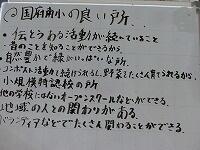 ②国府南小の良い所
・伝とうある活動が続いていること
昔のことを知ることができるから。
・自然豊かで緑がいっぱいな所。
・コンポスト活動も続けられるし、野菜もたくさん育てられるから。
・小規模特認校の所
他の学校にはないオープンスクールなどができる。
・地域の人との関わりがある。
ボランティアなどでたくさん関わることができる。